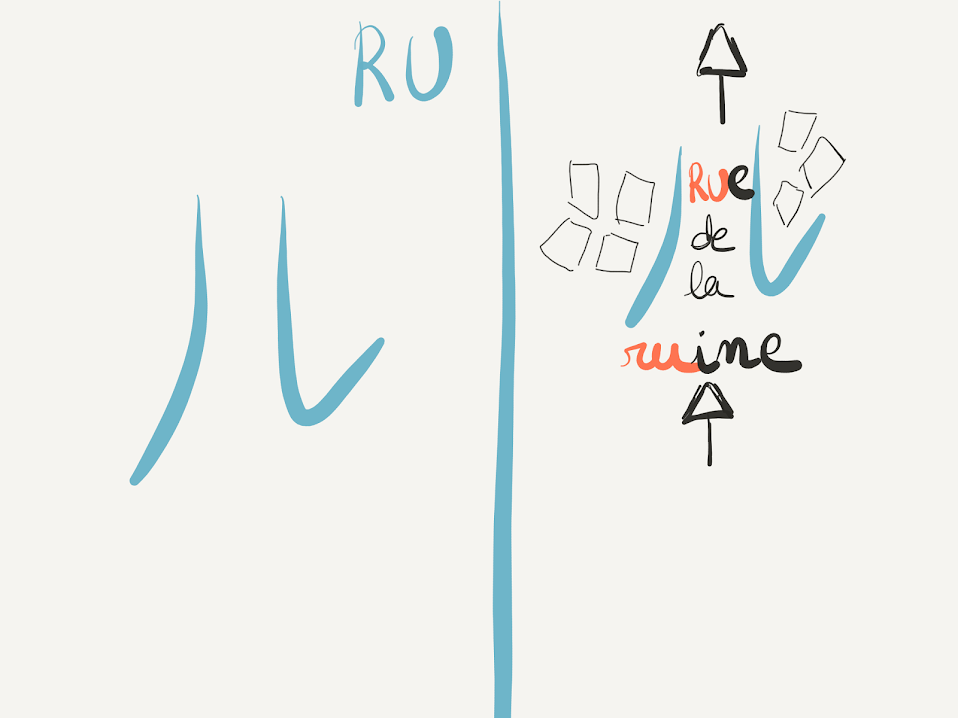 RU
ル
Rue
de
la
ruine